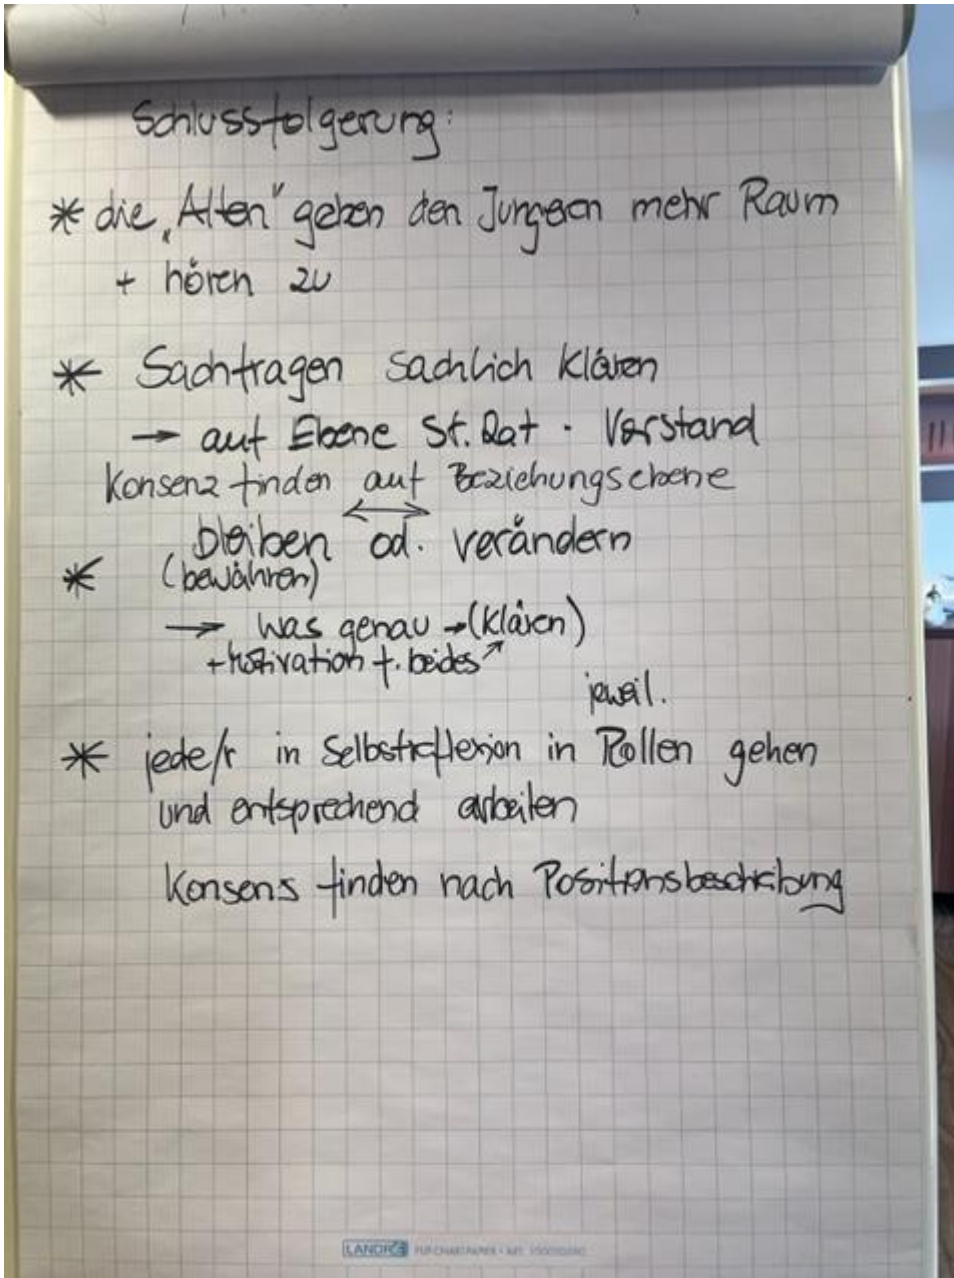 Schlussfolgerung:
* die „Alten" geben den Jungen mehr Raum
+ hören zu
* Sachfragen sachlich klären
→ auf Ebene St. Rat · Vorstand
Konsenz finden auf Beziehungsebene
↔
bleiben od. verändern
* (bewähren)
→ was genau → (klären)
+ Motivation f. beides ↗
jeweil.
* jede/r in Selbstreflexion in Rollen gehen
und entsprechend arbeiten
Konsens finden nach Positionsbeschreibung
LANDRÉ FLIPCHARTPAPIER • ART.